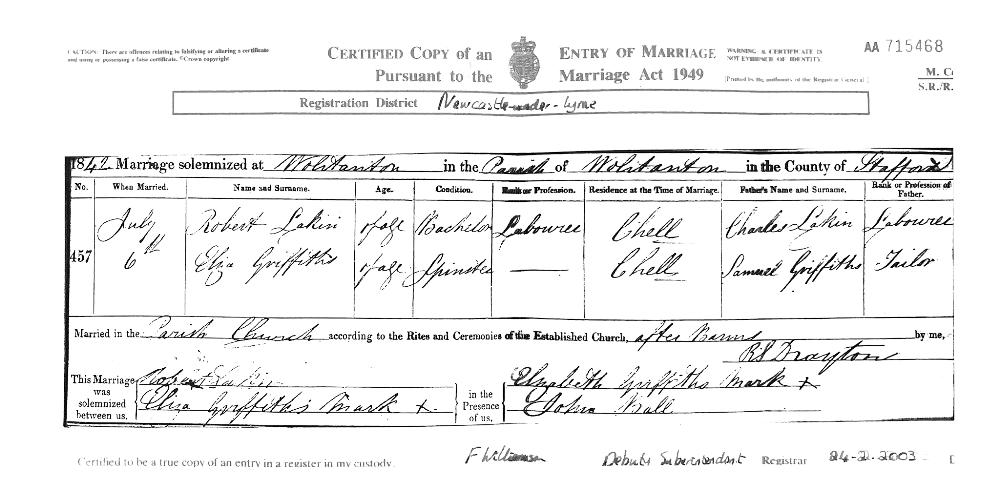 CAUTION: There are offences relating to falsifying or altering a certificate
and using or possessing a false certificate. ©Crown copyright
CERTIFIED COPY of an ENTRY OF MARRIAGE
Pursuant to the Marriage Act 1949
WARNING: A CERTIFICATE IS
NOT EVIDENCE OF IDENTITY
[Printed by the authority of the Registrar General]
AA 715468
M. C
S.R./R.
Registration District Newcastle-under-Lyme
1842 Marriage solemnized at Wolstanton in the Parish of Wolstanton in the County of Stafford
No. When Married. Name and Surname. Age. Condition. Rank or Profession. Residence at the Time of Marriage. Father's Name and Surname. Rank or Profession of Father.
457 July 6th
Robert Lakin of age Bachelor Labourer Chell Charles Lakin Labourer
Eliza Griffiths of age Spinster — Chell Samuel Griffiths Tailor
Married in the Parish Church according to the Rites and Ceremonies of the Established Church, after Banns by me,
R S Drayton
This Marriage was solemnized between us,
Robert Lakin
Eliza Griffiths Mark X
in the Presence of us,
Elizabeth Griffiths Mark X
John Ball
Certified to be a true copy of an entry in a register in my custody.
F Williamson Deputy Superintendent Registrar 24-2-2003